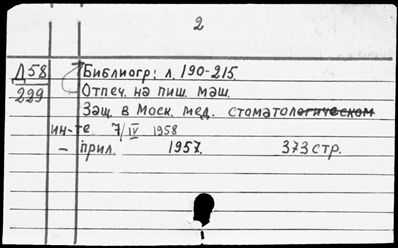 2
Д58
229
Библиогр: л. 190-215.
Отпеч. на пиш. маш.
Защ. в Моск. мед. стоматологическом
ин-те. 7/IV 1958
- прил. 1957. 373 стр.